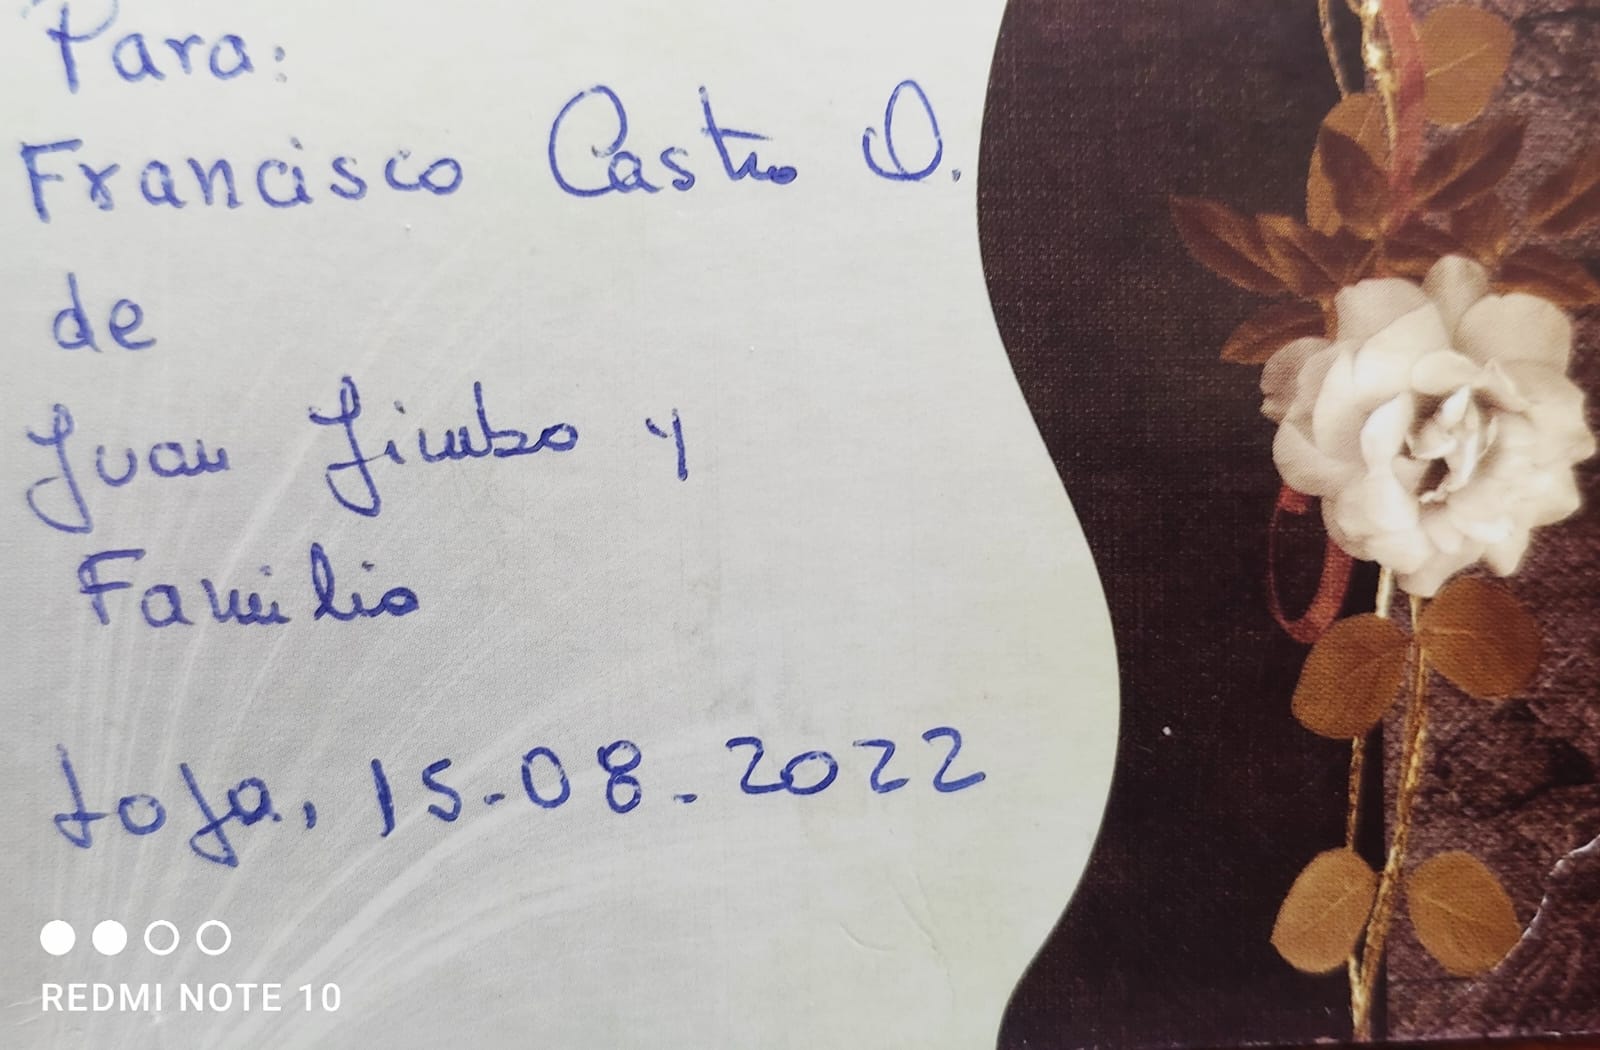 Para:
Francisco Castro O.
de
Juan Jimbo y
Familia
Loja, 15-08-2022
REDMI NOTE 10